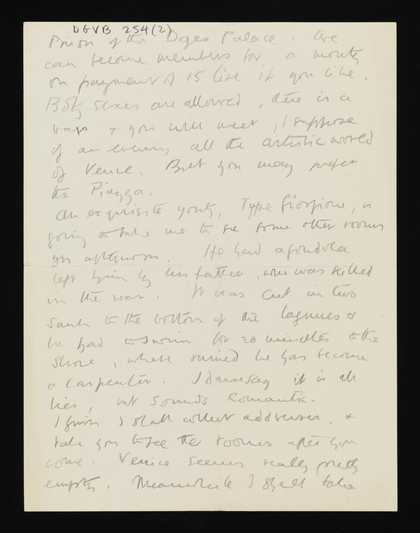 DGVB 254(2)
Prison of the Doges Palace. We
can become members for a month
on payment of 15 lire if you like.
Both sexes are allowed, there is a
& you will meet, I suppose
of an evening all the artistic world
of Venice. But you may prefer
the Piazza.
An exquisite youth, Type Giorgione, is
going to take me to see some other rooms
this afternoon. He had a gondola
left him by his father, who was killed
in the war. It was cut in two
sank to the bottom of the lagunes &
he had to swim for 20 minutes to the
shore, where ruined he has become
a carpenter. I daresay it is all
lies, but sounds romantic.
I shall collect addresses, &
take you to see the rooms after you
come. Venice seems really pretty
empty. Meanwhile I shall take